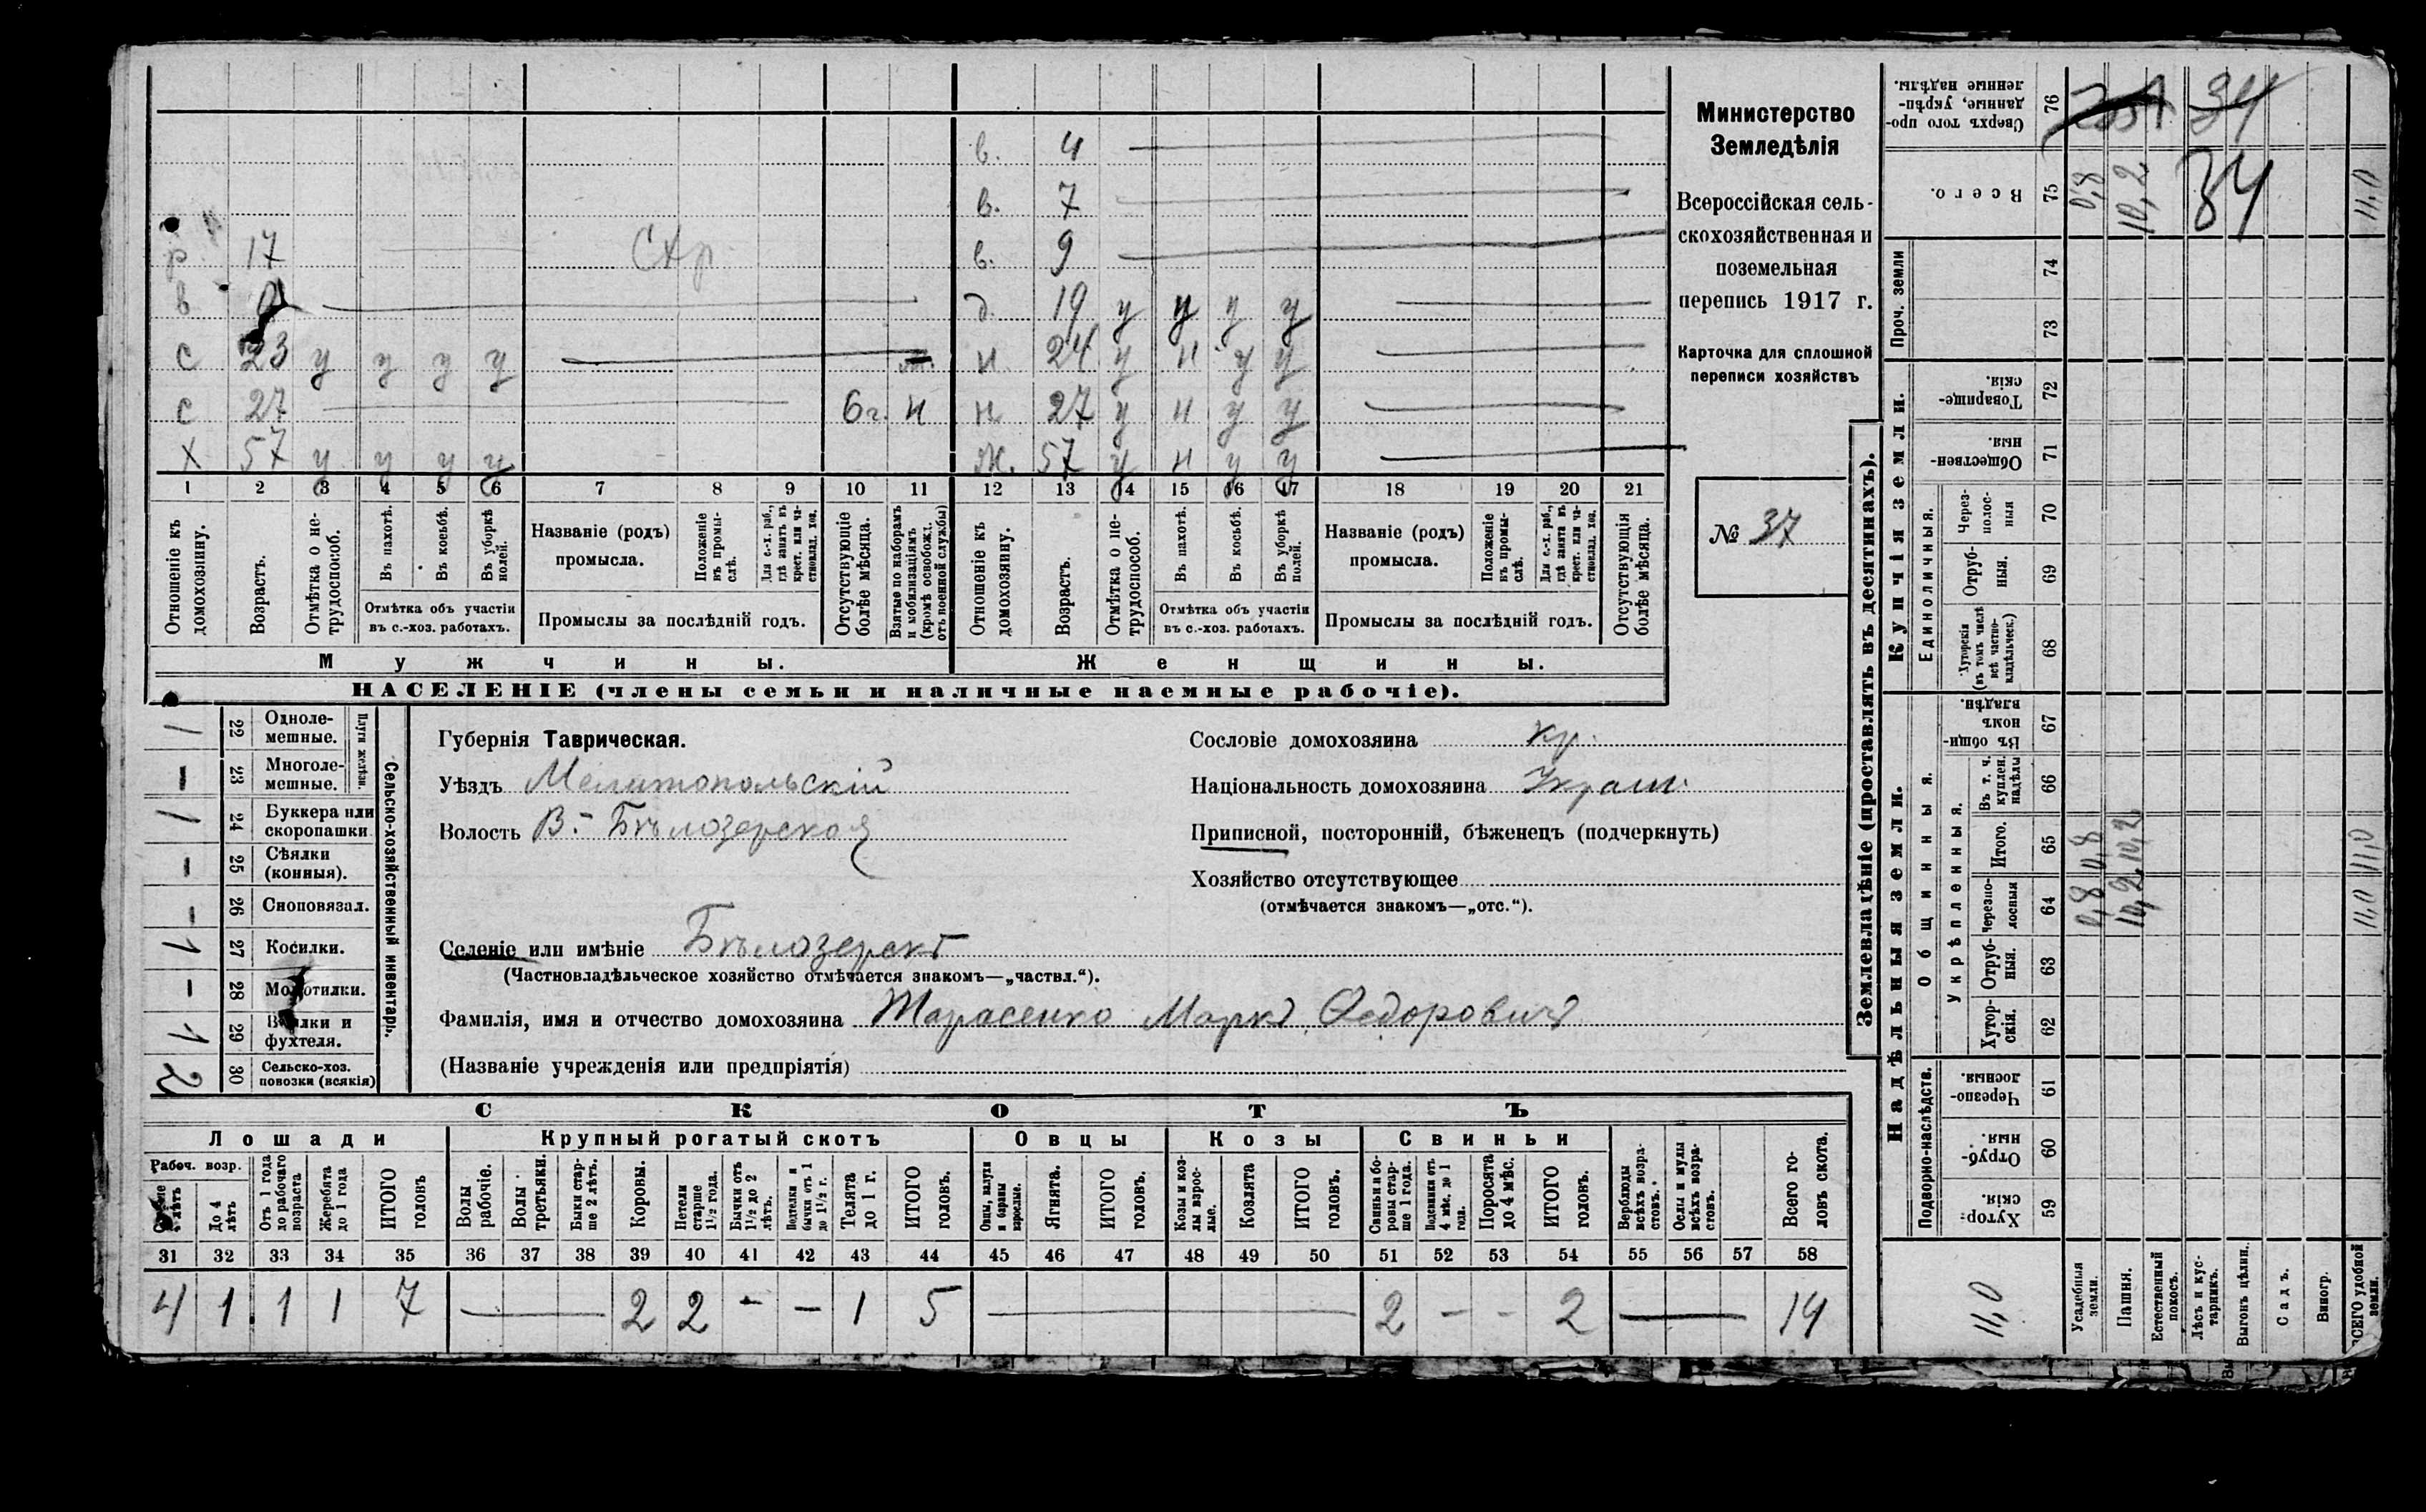 в. 4
в. 7
р 17 в. 9
в д. 19 у у у у
с 23 у у у у н. 24 у н у у
с 27 6 г. н н 27 у н у у
х 57 у у у у ж. 57 у н у у
1 2 3 4 5 6 7 8 9 10 11 12 13 14 15 16 17 18 19 20 21
Отношеніе къ домохозяину.
Возрастъ.
Отмѣтка о не-трудоспособ.
Въ пахотѣ.
Въ косьбѣ.
Въ уборкѣ полей.
Отмѣтка объ участіи
въ с.-хоз. работахъ.
Названіе (родъ)
промысла.
Положеніе въ промы-слѣ.
Для с.-х. раб., гдѣ занятъ въ крест. или ча-стновлад. хоз.
Промыслы за послѣдній годъ.
Отсутствующіе болѣе мѣсяца.
Взятые по наборамъ и мобилизаціямъ (кромѣ освобожд. отъ военной службы)
Отношеніе къ домохозяину.
Возрастъ.
Отмѣтка о не-трудоспособ.
Въ пахотѣ.
Въ косьбѣ.
Въ уборкѣ полей.
Отмѣтка объ участіи
въ с.-хоз. работахъ.
Названіе (родъ)
промысла.
Положеніе въ промы-слѣ.
Для с.-х. раб., гдѣ занята въ крест. или ча-стновлад. хоз.
Промыслы за послѣдній годъ.
Отсутствующія болѣе мѣсяца.
Мужчины. Женщины.
НАСЕЛЕНІЕ (члены семьи и наличные наемные рабочіе).
Министерство
Земледѣлія
Всероссійская сель-
скохозяйственная и
поземельная
перепись 1917 г.
Карточка для сплошной
переписи хозяйствъ
№ 37
Сельско-хозяйственный инвентарь.
Плуги желѣзн.
1 22 Одноле-мешные.
– 23 Многоле-мешные.
1 24 Буккера или скоропашки
– 25 Сѣялки (конныя).
– 26 Сноповязал.
1 27 Косилки.
– 28 Молотилки.
1 29 Вѣялки и фухтеля.
2 30 Сельско-хоз. повозки (всякія)
Губернія Таврическая.
Уѣздъ Мелитопольскій
Волость В.-Бѣлозерская
Сословіе домохозяина кр.
Національность домохозяина Украин.
Приписной, посторонній, бѣженецъ (подчеркнуть)
Хозяйство отсутствующее
(отмѣчается знакомъ—„отс.“).
Селеніе или имѣніе Бѣлозерскъ
(Частновладѣльческое хозяйство отмѣчается знакомъ—„частвл.“).
Фамилія, имя и отчество домохозяина Тарасенко Маркъ Федоровичъ
(Названіе учрежденія или предпріятія)
СКОТЪ
Лошади Крупный рогатый скотъ Овцы Козы Свиньи
Рабоч. возр.
До 4 лѣтъ
Отъ 1 года до рабочаго возраста
Жеребята до 1 года
ИТОГО головъ
Волы рабочіе.
Волы третьяки.
Быки стар-ше 2 лѣтъ.
Коровы.
Петели старше 1½ года.
Бычки отъ 1½ до 2 лѣтъ.
Подтелки и бычки отъ 1 до 1½ г.
Телята до 1 г.
ИТОГО головъ.
Овцы, валухи и бараны взрослые.
Ягнята.
ИТОГО головъ.
Козы и коз-лы взрос-лые.
Козлята
ИТОГО головъ.
Свиньи и бо-ровы стар-ше 1 года.
Подсвинки отъ 4 мѣс. до 1 года.
Поросята до 4 мѣс.
ИТОГО головъ.
Верблюды всѣхъ возра-стовъ.
Ослы и мулы всѣхъ возра-стовъ.
Всего го-ловъ скота.
31 32 33 34 35 36 37 38 39 40 41 42 43 44 45 46 47 48 49 50 51 52 53 54 55 56 57 58
4 1 1 1 7 — 2 2 – – 1 5 — — 2 – – 2 — 14
Землевладѣніе (проставлять въ десятинахъ).
Надѣльныя земли. Купчія земли. Проч. земли
Подворно-наслѣдств.
Общинныя.
Укрѣпленныя.
Единоличныя.
59 Хутор-скія.
60 Отруб-ныя.
61 Черезпо-лосныя.
62 Хутор-скія.
63 Отруб-ныя.
64 Черезпо-лосныя
65 Итого.
66 Въ т. ч. куплен. надѣлы
67 Въ общи-номъ владѣн.
68 Хуторскія (въ томъ числѣ всѣ частно-владѣльческ.)
69 Отруб-ныя.
70 Через-полос-ныя
71 Обществен-ныя.
72 Товарище-скія.
73
74
75 Всего.
76 Сверхъ того про-данные, укрѣп-ленные надѣлы.
Усадебныя земли. 0,8 0,8 0,8
Пашня. 10,2 10,2 10,2
Естественный покосъ.
Лѣсъ и кус-тарникъ.
Выгонъ цѣлин.
Садъ.
Виногр.
ВСЕГО удобной земли. 11,0 11,0 11,0
11,0
34
34